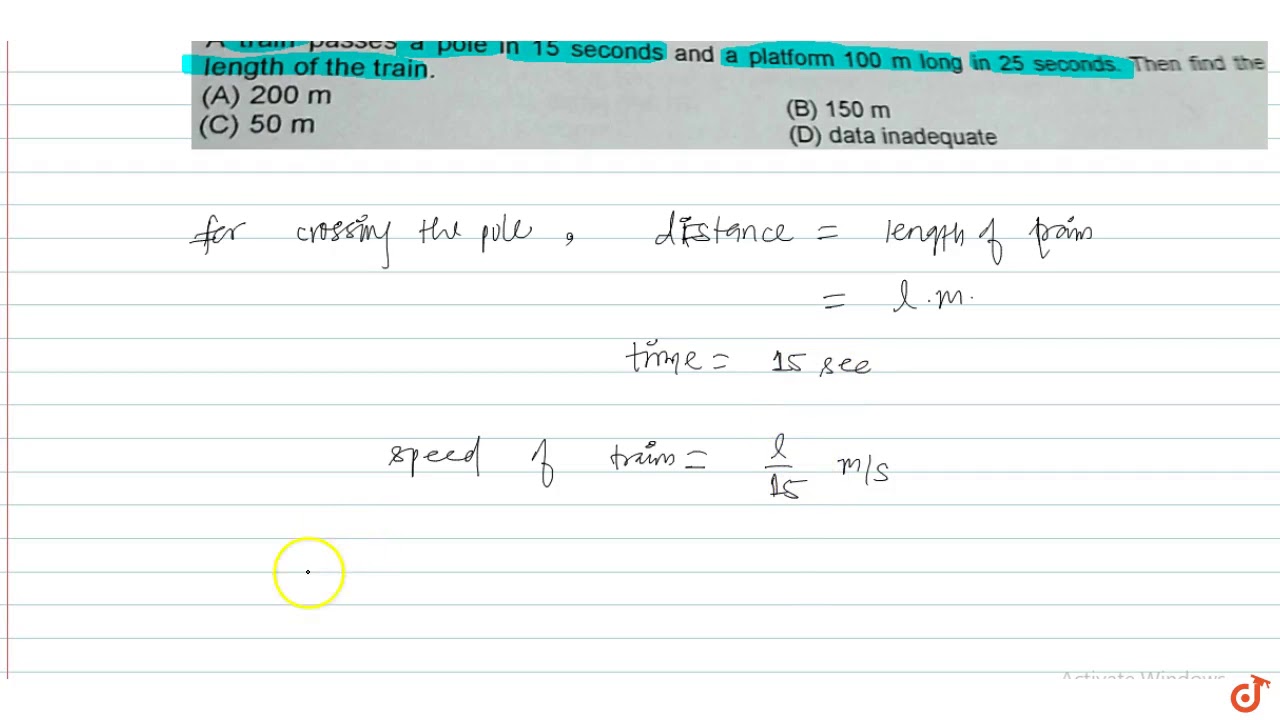 A train passes a pole in 15 seconds and a platform 100 m long in 25 seconds. Then find the
length of the train.
(A) 200 m
(B) 150 m
(C) 50 m
(D) data inadequate
for crossing the pole, distance = length of train
= l.m.
time = 15 sec
speed of train = l/15 m/s
Activate Windows